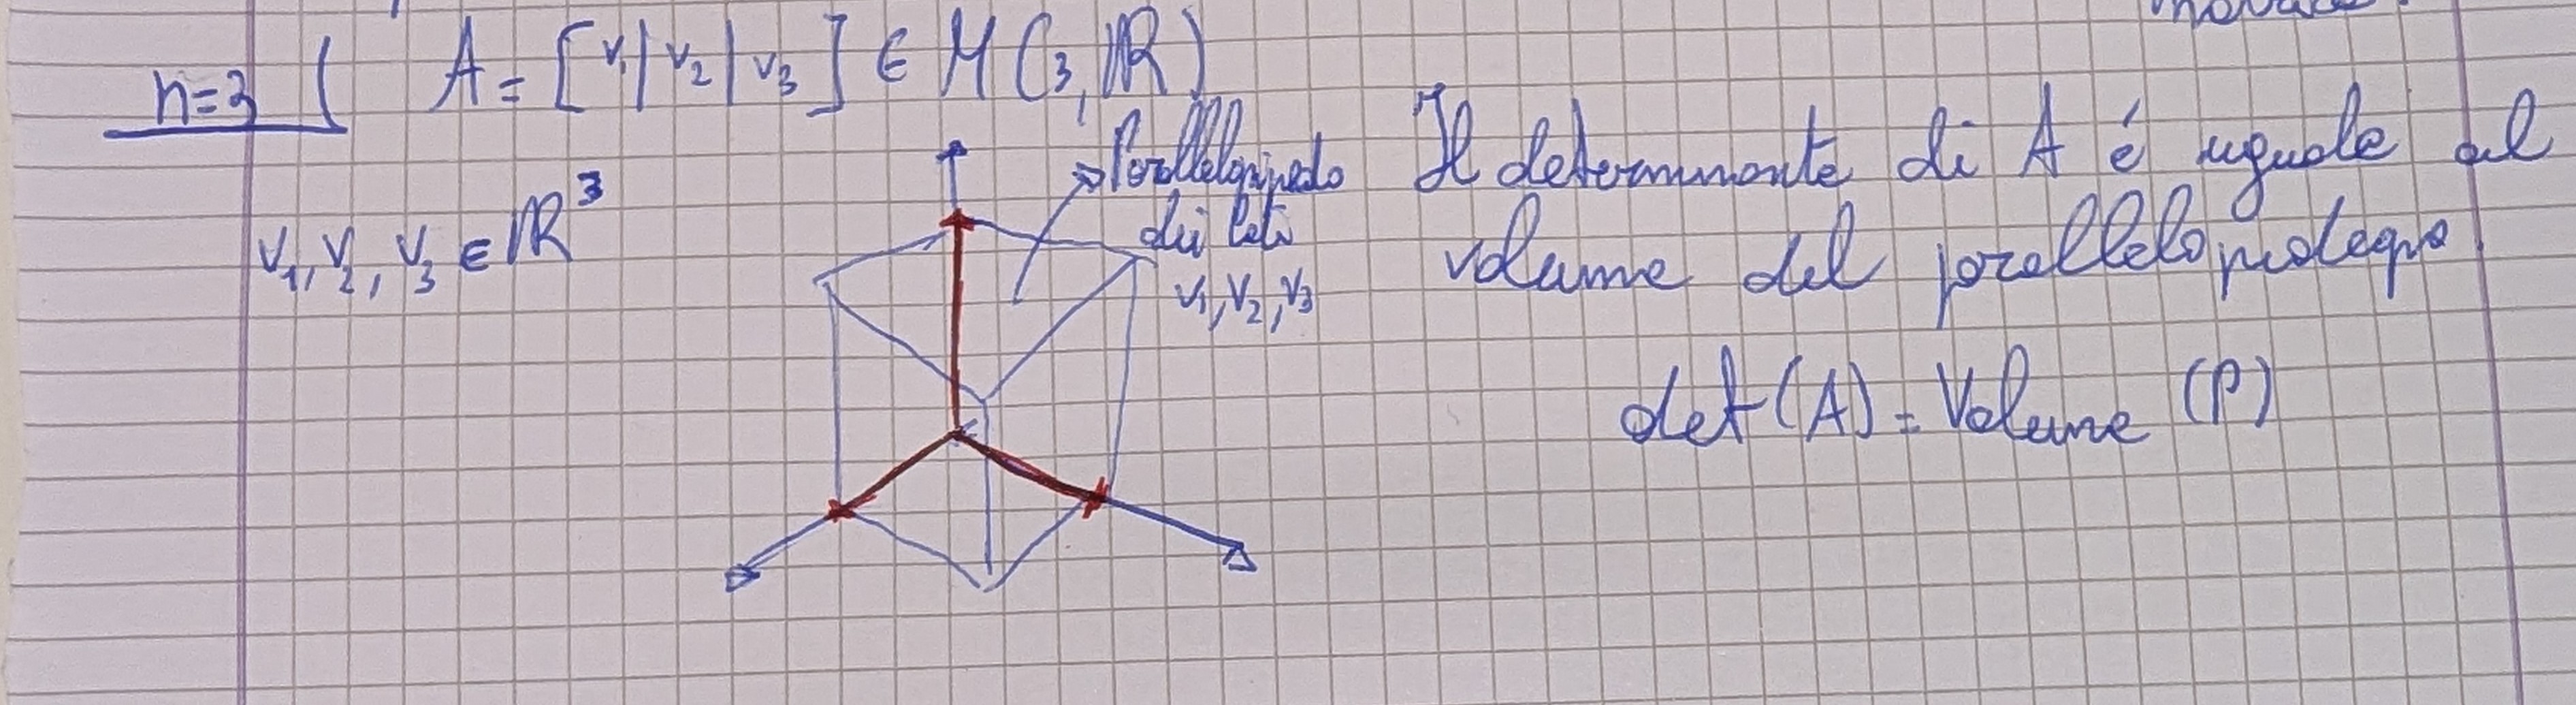 n=3
A = [v₁|v₂|v₃] ∈ M(3,ℝ)
v₁, v₂, v₃ ∈ ℝ³
Parallelepipedo
di lati
v₁, v₂, v₃
Il determinante di A é uguale al
volume del
det(A) = Volume (P)